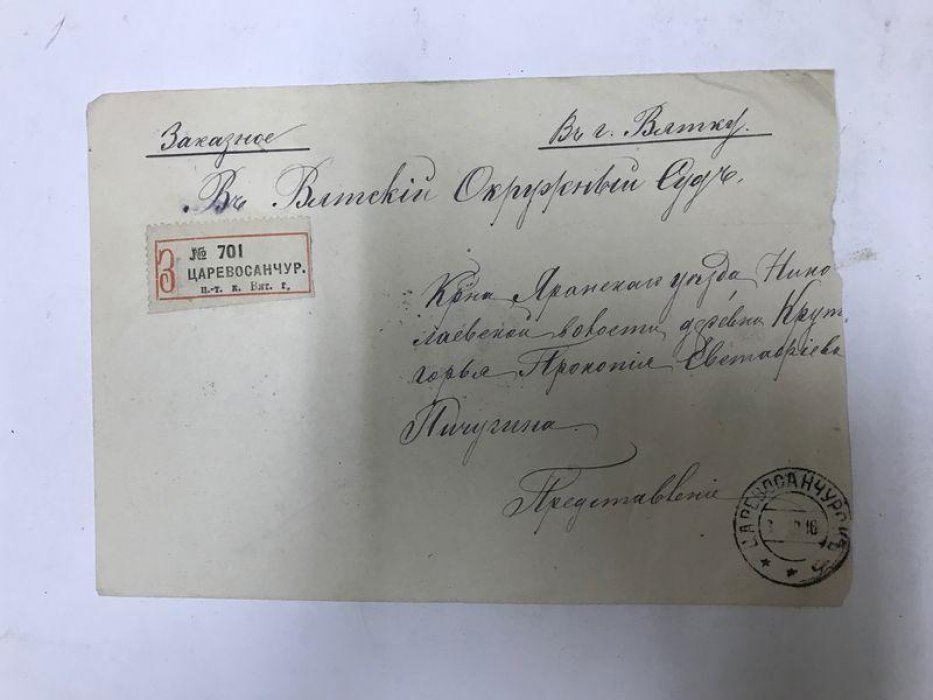 Заказное
Въ г. Вятку.
Въ Вятскій Окружный Судъ.
З
№ 701
ЦАРЕВОСАНЧУР.
п.-т. к. Вят. г,
Кр-на Яранскаго уѣзда Нико
лаевской волости деревни Крут
горья Прокопія Евстафіева
Пичугина
Представленіе
ЦАРЕВОСАНЧУРС
16